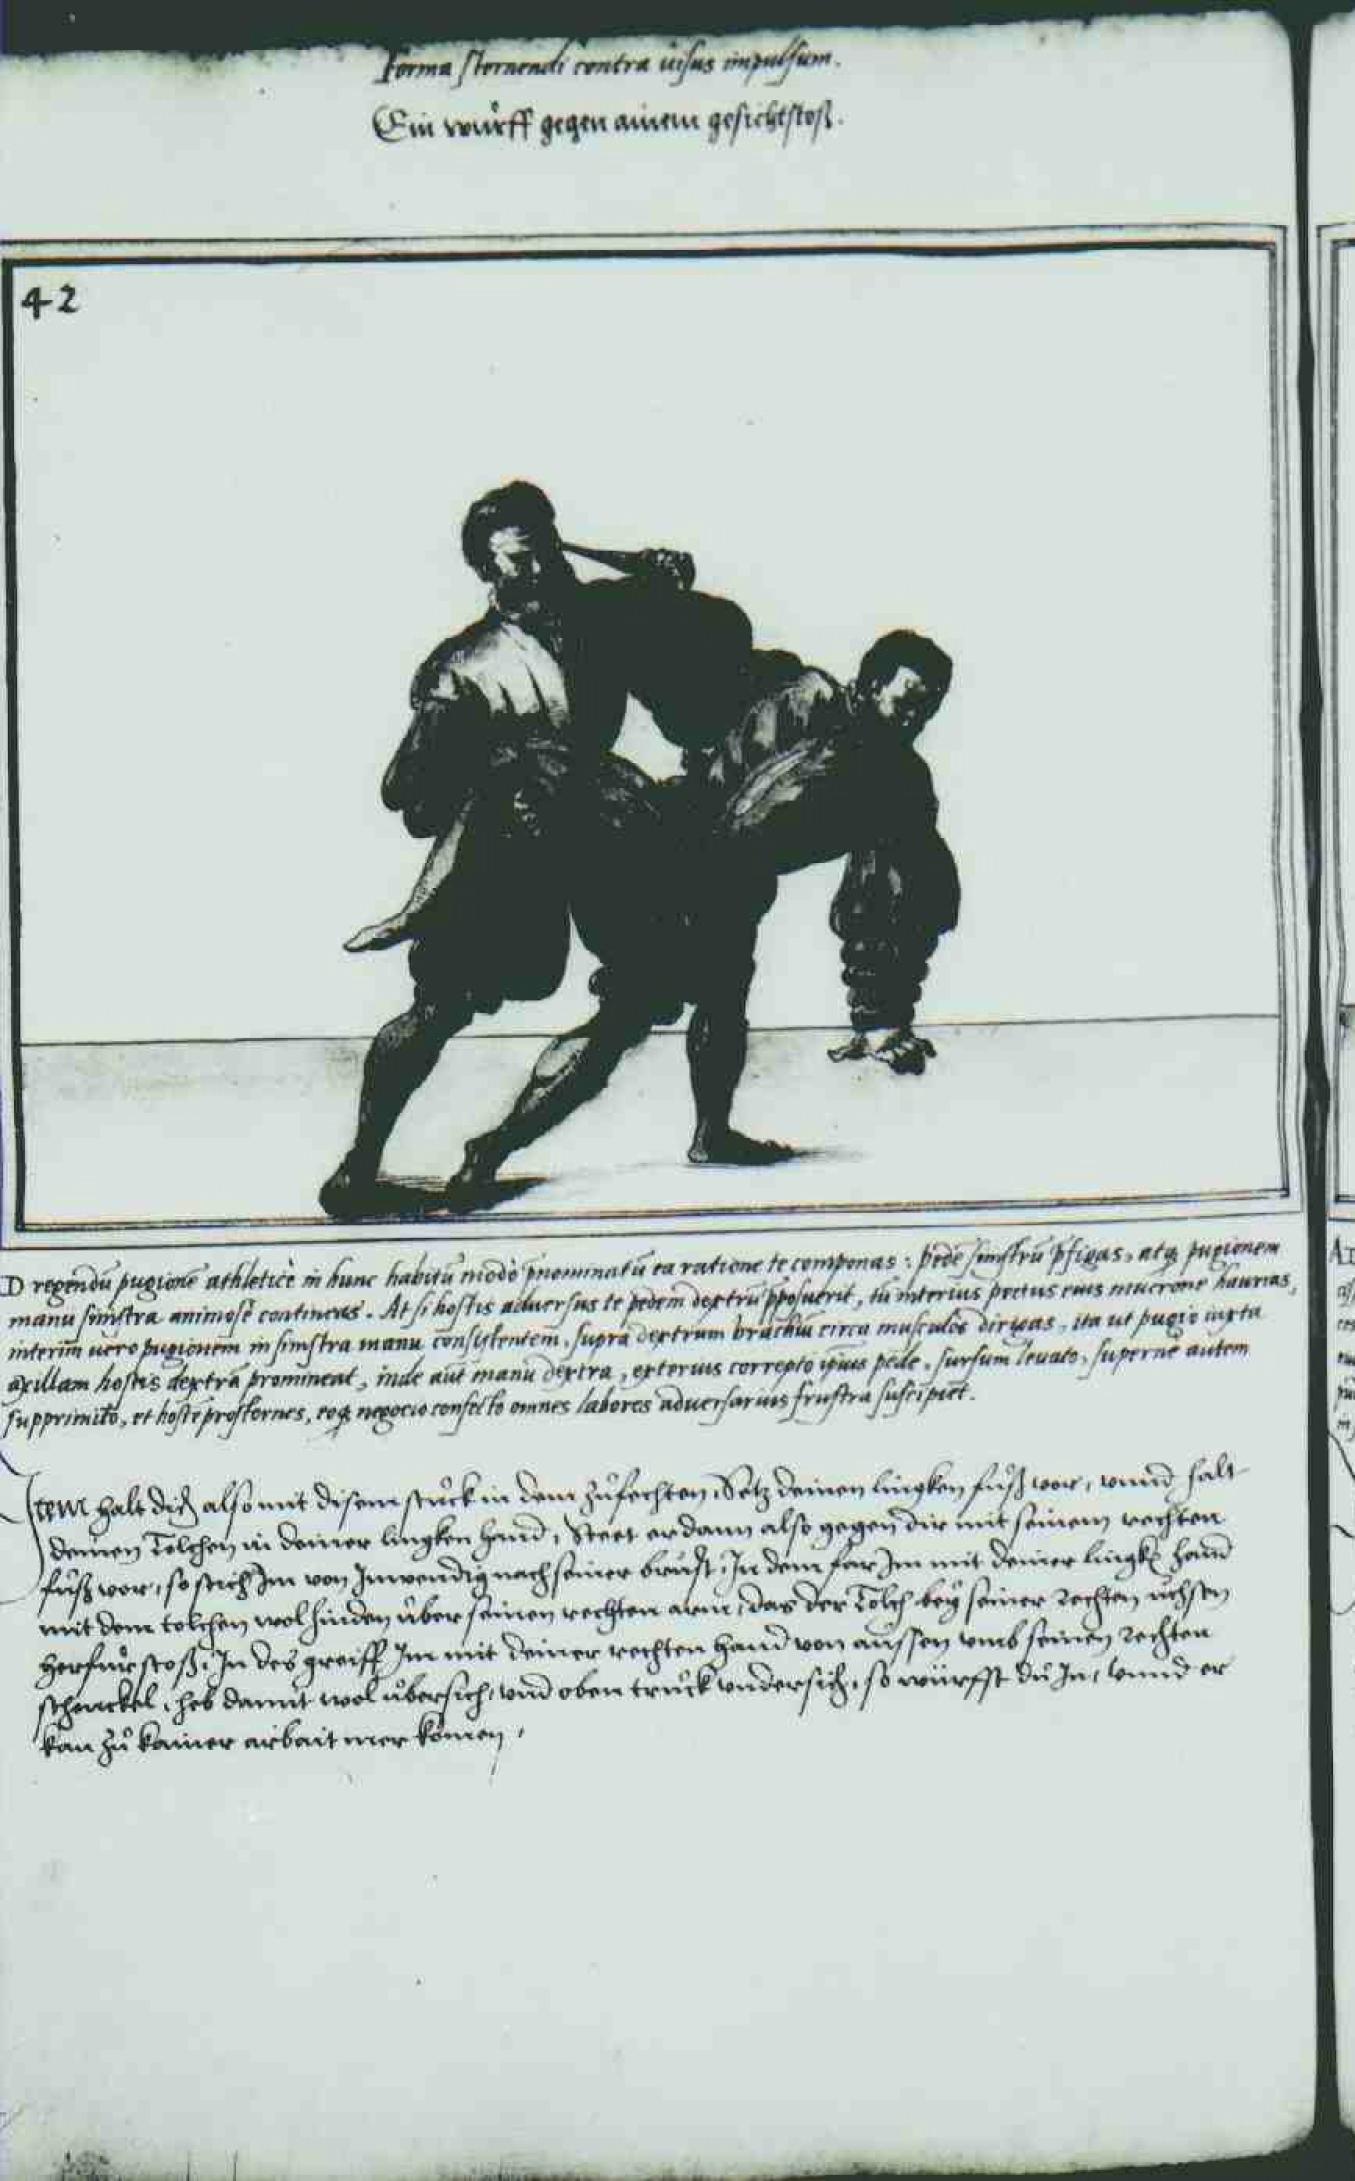 Forma sternendi contra uisus impulsum.
Ein wuͤrff gegen ainem gesichtstoß.
42
D regendū pugionē athleticè in hunc habitū modò pnominatū ea ratione te componas: pedē sinistrū pfigas, atq pugionem
manu sinistra animosè contineas. At si hostis aduersus te pedem dextrū pposuerit, tu interius pectus eius mucrone haurias,
interim uero pugionem in sinistra manu consistentem, supra dextrum brachiū circa musculos dirigas, ita ut pugio iuxta
axillam hostis dextrā promineat, inde aūt manu dextra, exterius correpto ipsius pede, sursum leuato, supernè autem
supprimito, et hostē prosternes, eoq negocio confecto omnes labores aduersarius frustra suscipiet.
Item halt dich also mit disem stuͤck in dem zuͦfechten, Setz deinen lingken fuͦß vor, vnnd halt
deinen Tolchen in deiner lingken hand, Steet er dann also gegen dir mit seinem rechten
fuͦß vor, so stich Im von Inwendig nach seiner brust, In dem far Im mit deiner lingkē hand
mit dem tolchen wol hinden uͤber seinen rechten arm, das der Tolch bey seiner rechten uͤchsen
herfuͤr stoß, In des greiff Im mit deiner rechten hand von aussen vmb seinen rechten
schenckel, heb damit wol uͤbersich, vnd oben truck vndersich, so würffst du In, vnnd er
kan zuͦ kainer arbait mer komen,